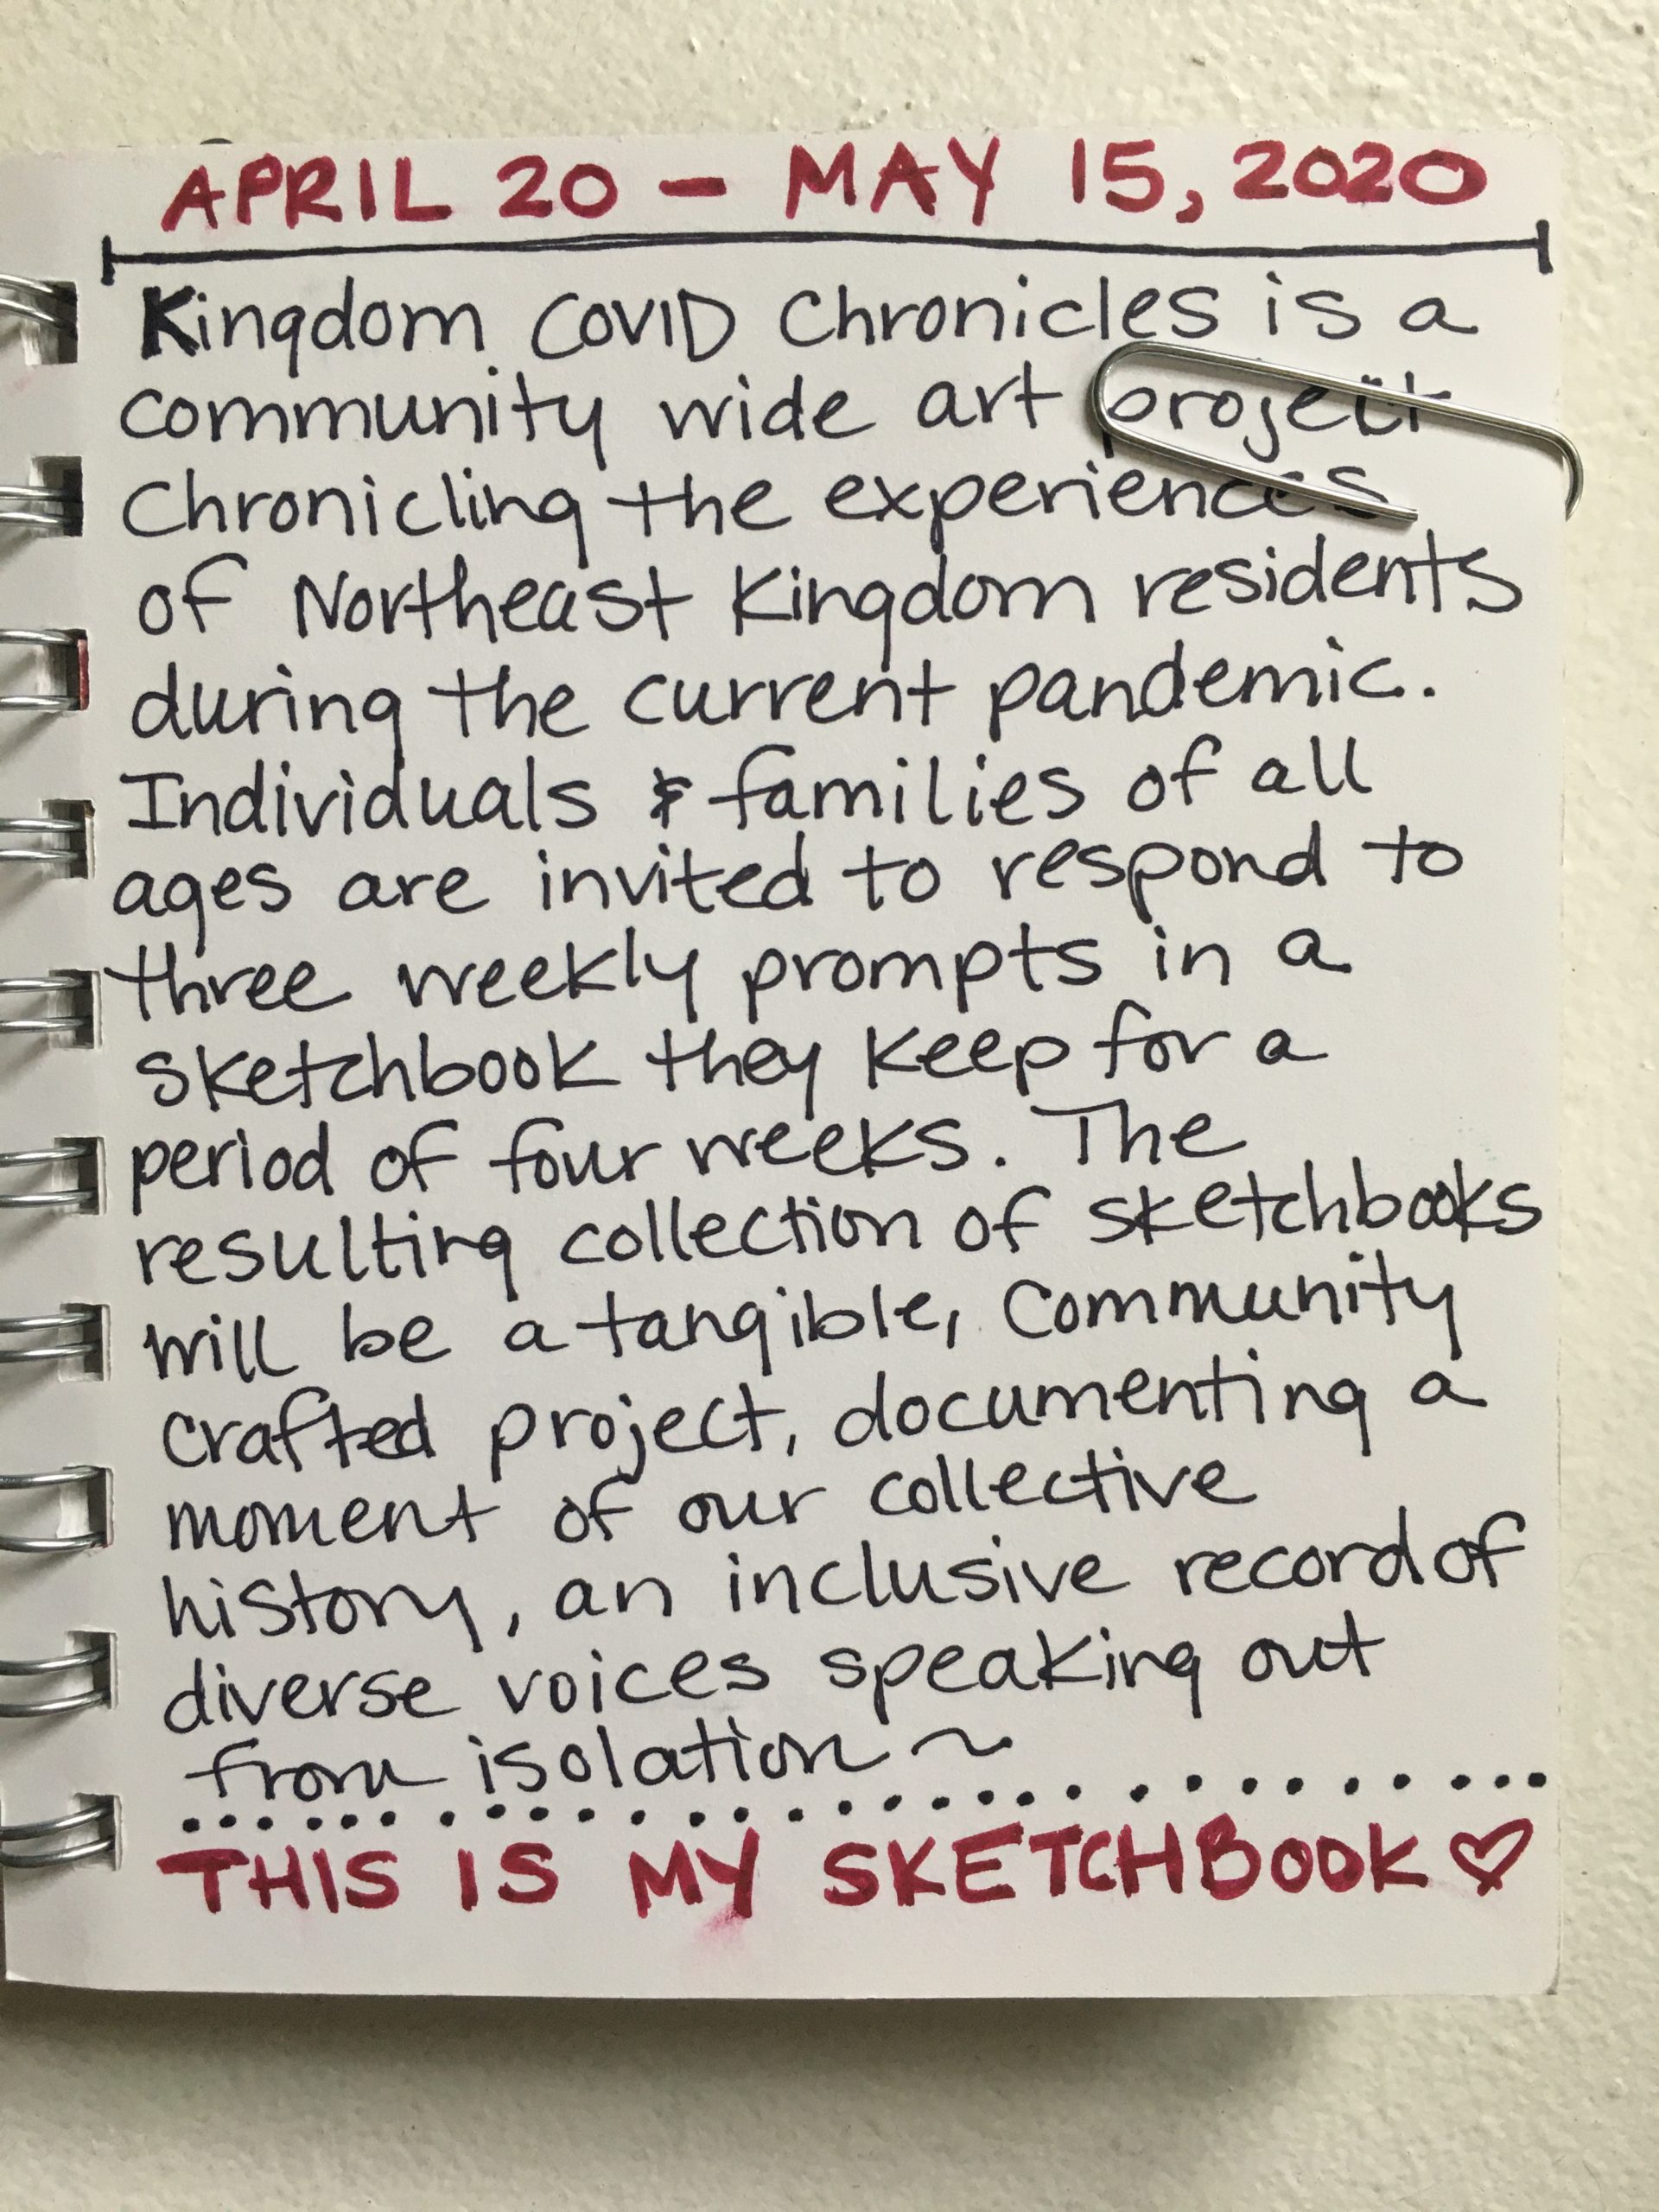 APRIL 20 – MAY 15, 2020
Kingdom COVID Chronicles is a
community wide art project
Chronicling the experiences
of Northeast Kingdom residents
during the current pandemic.
Individuals & families of all
ages are invited to respond to
three weekly prompts in a
sketchbook they keep for a
period of four weeks. The
resulting collection of sketchbooks
will be a tangible, Community
Crafted project, documenting a
moment of our collective
history, an inclusive record of
diverse voices speaking out
from isolation ~
THIS IS MY SKETCHBOOK ♡